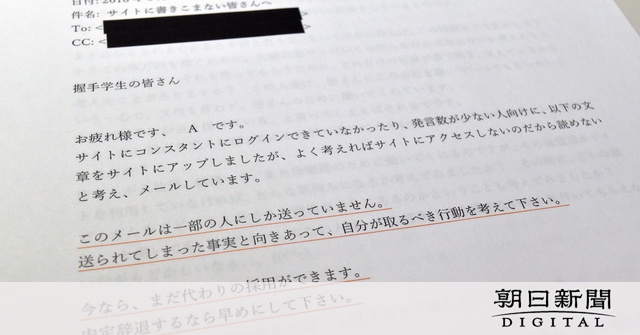 件名: サイトに書きこまない皆さんへ
To: <
CC: <
握手学生の皆さん
お疲れ様です、 A です。
サイトにコンスタントにログインできていなかったり、発言数が少ない人向けに、以下の文
章をサイトにアップしましたが、よく考えればサイトにアクセスしないのだから読めない
と考え、メールしています。
このメールは一部の人にしか送っていません。
送られてしまった事実と向きあって、自分が取るべき行動を考えて下さい。
今なら、まだ代わりの採用ができます。
内定辞退するなら早めにして下さい。
朝日新聞
DIGITAL